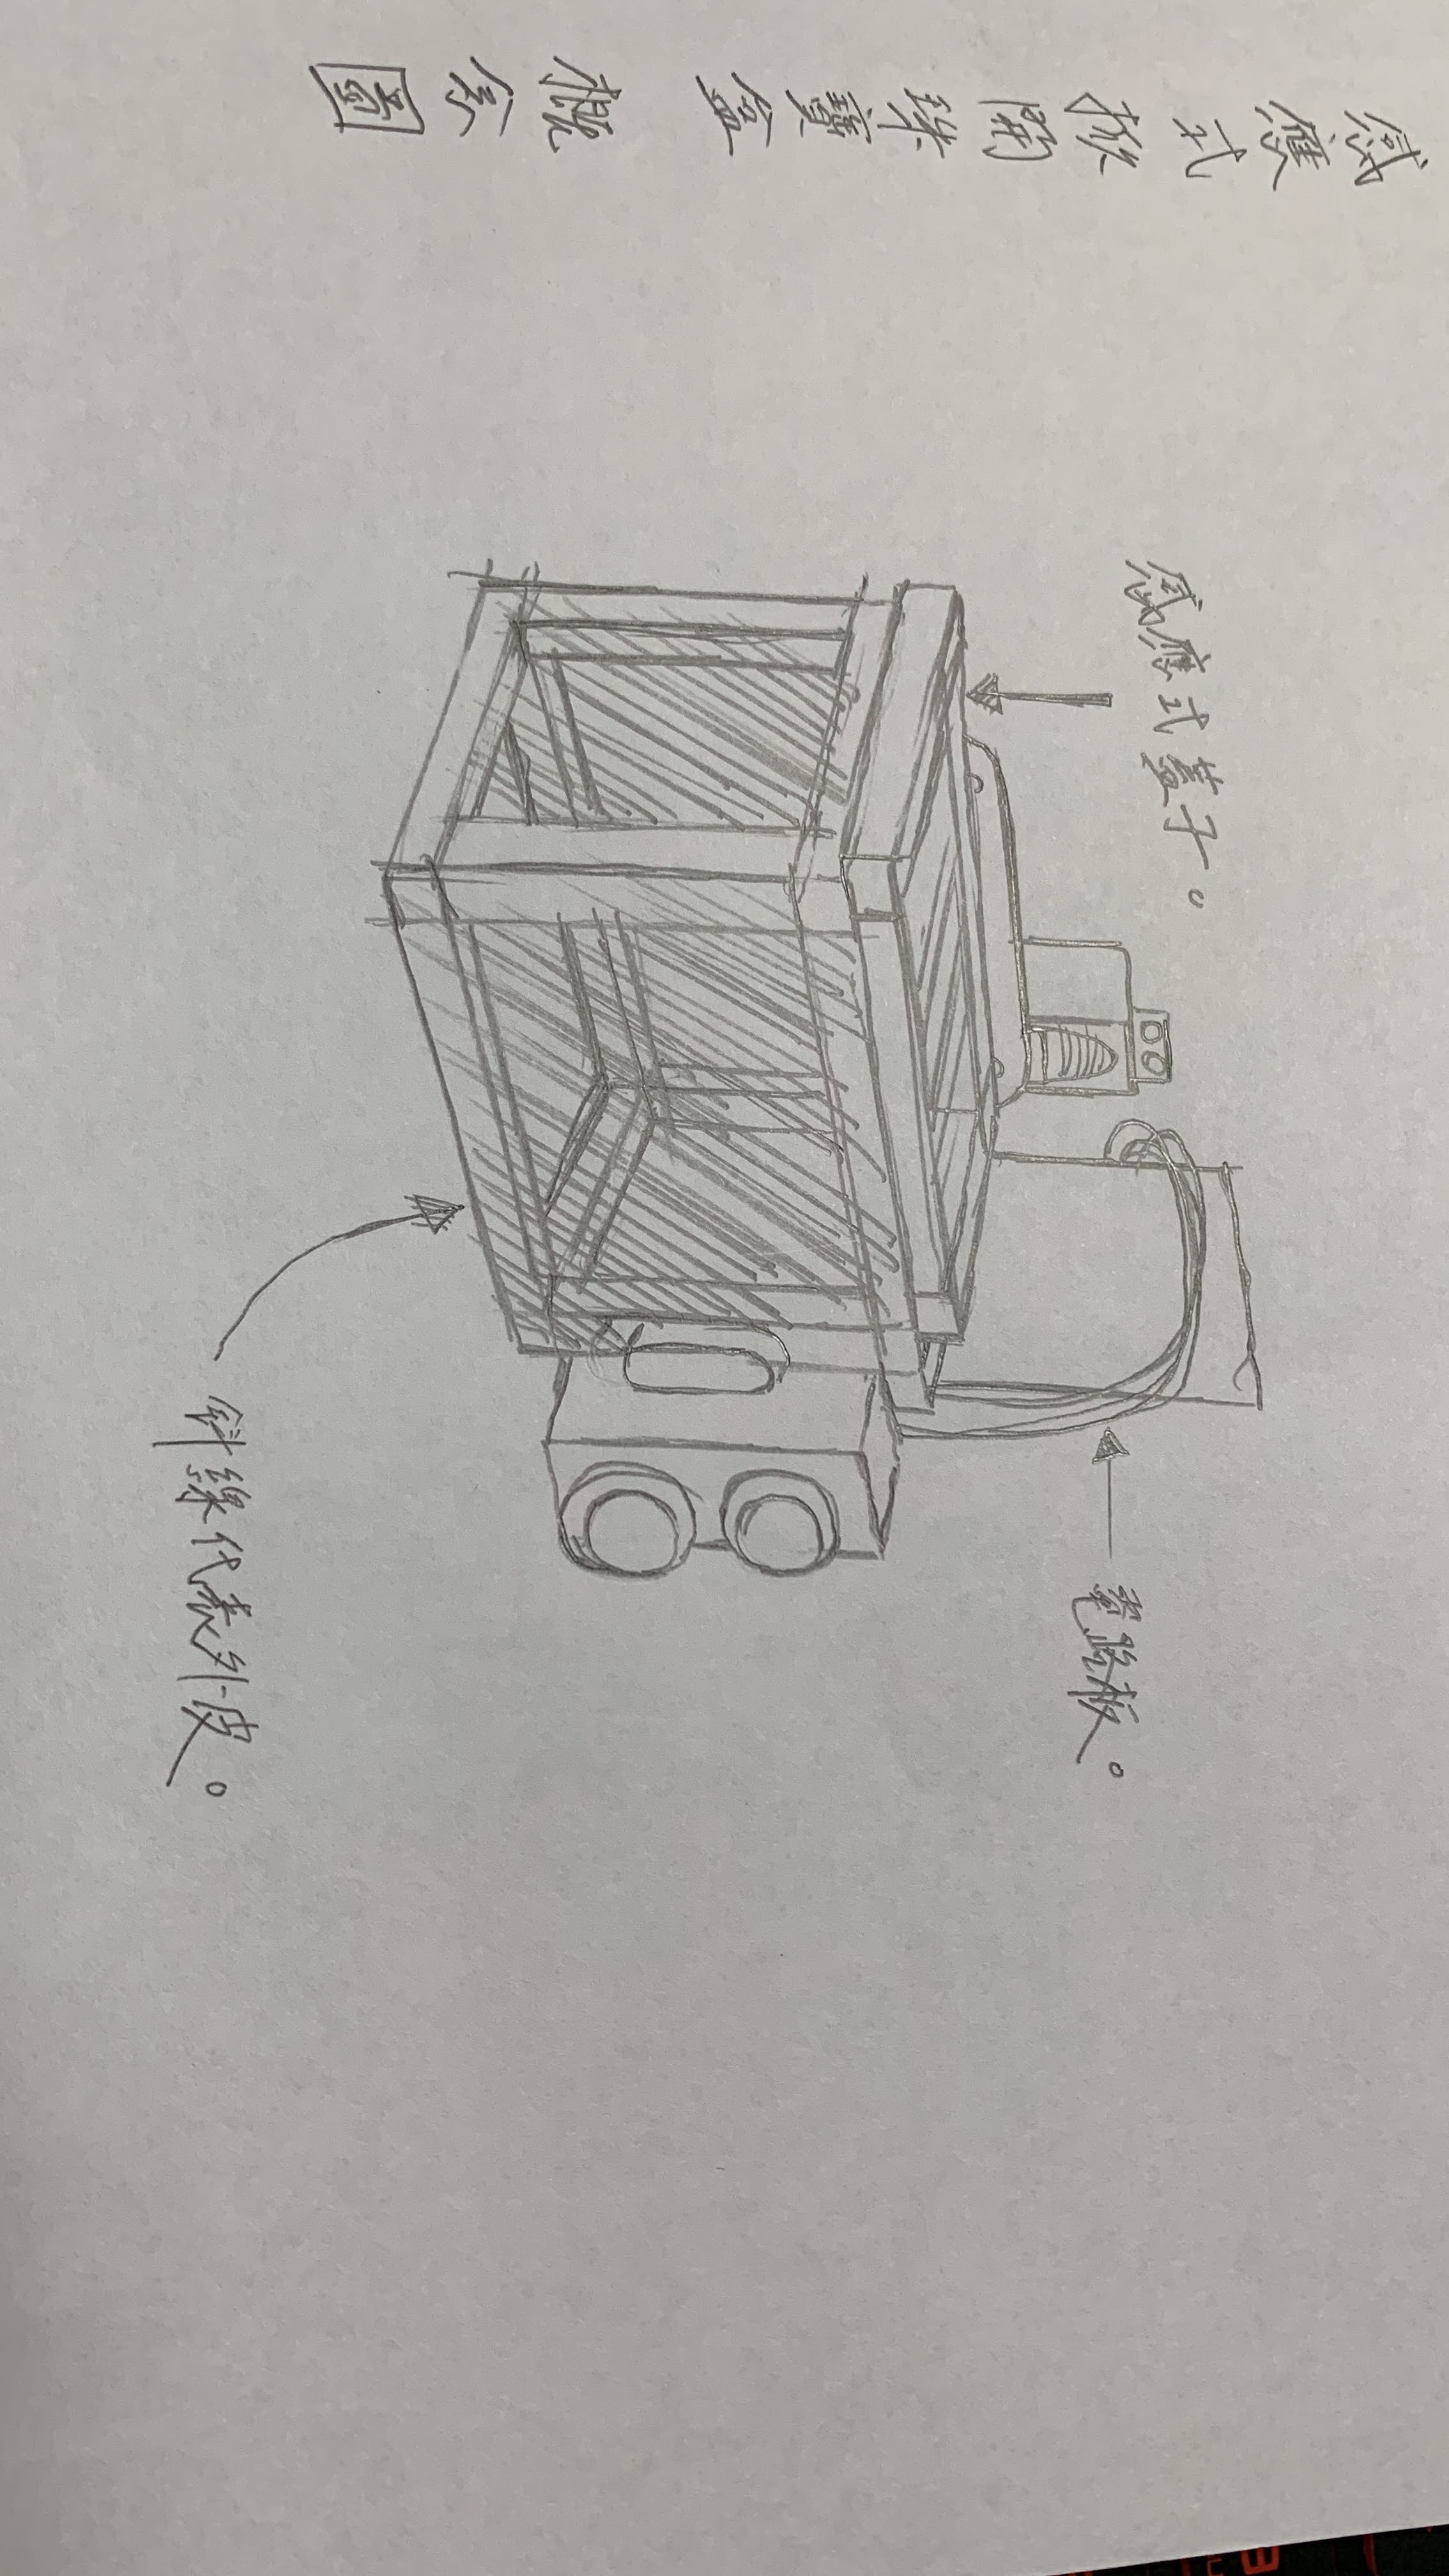 感應式掀開珠寶盒 概念圖
感應式蓋子。
電路板。
斜線代表外皮。